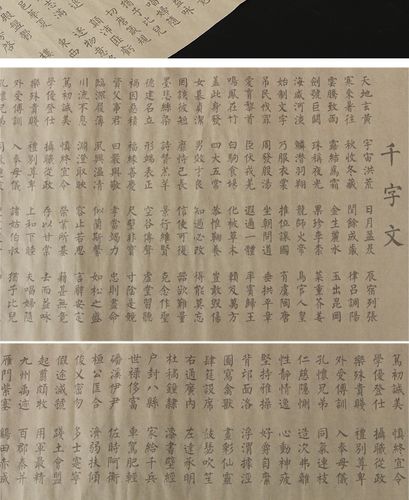 千字文
天地玄黃 宇宙洪荒 日月盈昃 辰宿列張
寒來暑往 秋收冬藏 閏餘成歲 律呂調陽
雲騰致雨 露結為霜 金生麗水 玉出崑岡
劍號巨闕 珠稱夜光 果珍李柰 菜重芥薑
海鹹河淡 鱗潛羽翔 龍師火帝 鳥官人皇
始制文字 乃服衣裳 推位讓國 有虞陶唐
弔民伐罪 周發殷湯 坐朝問道 垂拱平章
愛育黎首 臣伏戎羌 遐邇一體 率賓歸王
鳴鳳在竹 白駒食場 化被草木 賴及萬方
蓋此身髮 四大五常 恭惟鞠養 豈敢毀傷
女慕貞潔 男效才良 知過必改 得能莫忘
罔談彼短 靡恃己長 信使可覆 器欲難量
墨悲絲染 詩讚羔羊 景行維賢 克念作聖
德建名立 形端表正 空谷傳聲 虛堂習聽
禍因惡積 福緣善慶 尺璧非寶 寸陰是競
資父事君 曰嚴與敬 孝當竭力 忠則盡命
臨深履薄 夙興溫凊 似蘭斯馨 如松之盛
川流不息 淵澄取映 容止若思 言辭安定
篤初誠美 慎終宜令 榮業所基 籍甚無竟
學優登仕 攝職從政 存以甘棠 去而益詠
樂殊貴賤 禮別尊卑 上和下睦 夫唱婦隨
外受傅訓 入奉母儀 諸姑伯叔 猶子比兒
篤初誠美 慎終宜令
學優登仕 攝職從政
樂殊貴賤 禮別尊卑
外受傅訓 入奉母儀
孔懷兄弟 同氣連枝
仁慈隱惻 造次弗離
性靜情逸 心動神疲
堅持雅操 好爵自縻
背邙面洛 浮渭據涇
圖寫禽獸 畫彩仙靈
肆筵設席 鼓瑟吹笙
右通廣內 左達承明
杜稿鍾隸 漆書壁經
戶封八縣 家給千兵
世祿侈富 車駕肥輕
磻溪伊尹 佐時阿衡
桓公匡合 濟弱扶傾
俊乂密勿 多士寔寧
假途滅虢 踐土會盟
起翦頗牧 用軍最精
九州禹跡 百郡秦并
雁門紫塞 雞田赤城